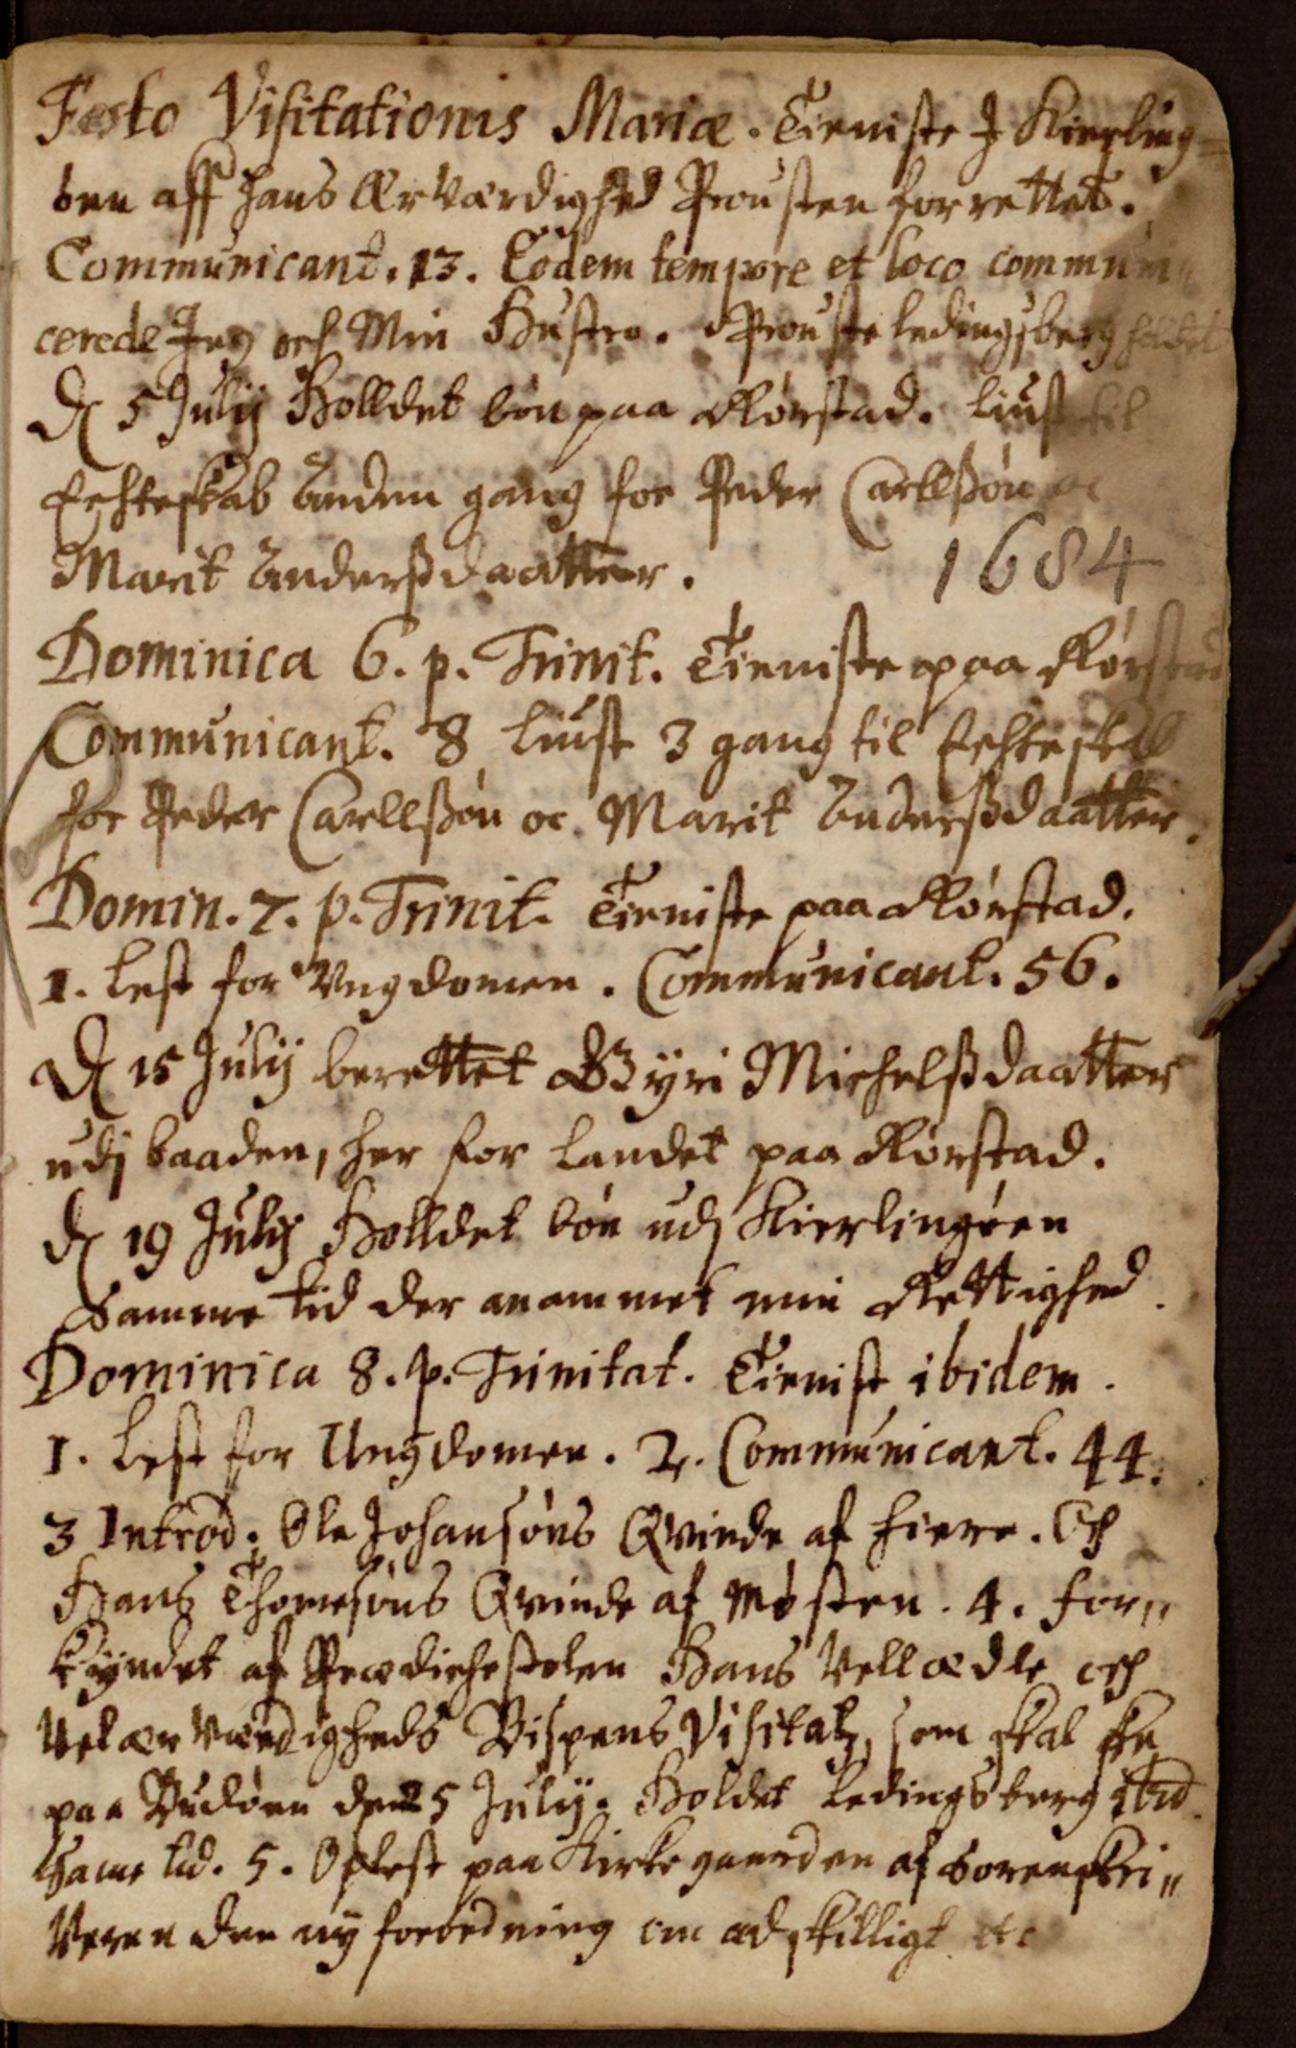 Festo Visitationis Mariæ. Tieniste I Kierling=
öen aff hans Ærværdighed Prousten forrettet.
Communicant. 13. Eodem tempore et loco communi=
cerede Jeg och Min Hustro. Prouste ledingsberg holdet
D 5 Julij Holldet bön paa Rörstad. liust til
Echteskab Anden gang for Peder Carllssön oc
Marit Anderssdaatter. 1684
Dominica 6. p. Trinit. Tieniste paa Rörstad
Communicant. 8 liust 3 gang til Echteskab
for Peder Carllssön oc Marit Anderssdaatter.
Domin. 7. p. Trinit. Tieniste paa Rörstad.
1. lest for Vngdomen. Communicant. 56.
D 15 Julij berettet Gyri Michelssdaatter
udj baaden, her for landet paa Rörstad.
d 19 Julij Holldet bön udj Kierlingöen
Samme tid der anammet min Rettighed.
Dominica 8. p. Trinitat. Tienist ibidem.
1. Lest for Ungdomen. 2. Communicant. 44.
3 Introd. Ole Johansöns Qvinde af fiere. Och
Hans Thomesöns Qvinde af Mösten. 4. for=
kyndet af Prædichestolen Hans Vellædle och
Velærværdigheds Bispens Visitatz, som skal ske
paa Budöen den 25 Julij. Holdet Ledingsberg ibid.
same tid. 5. Oplest paa Kirkegaarden af Sorenskri=
Veren den ny forordning om adskilligt etc